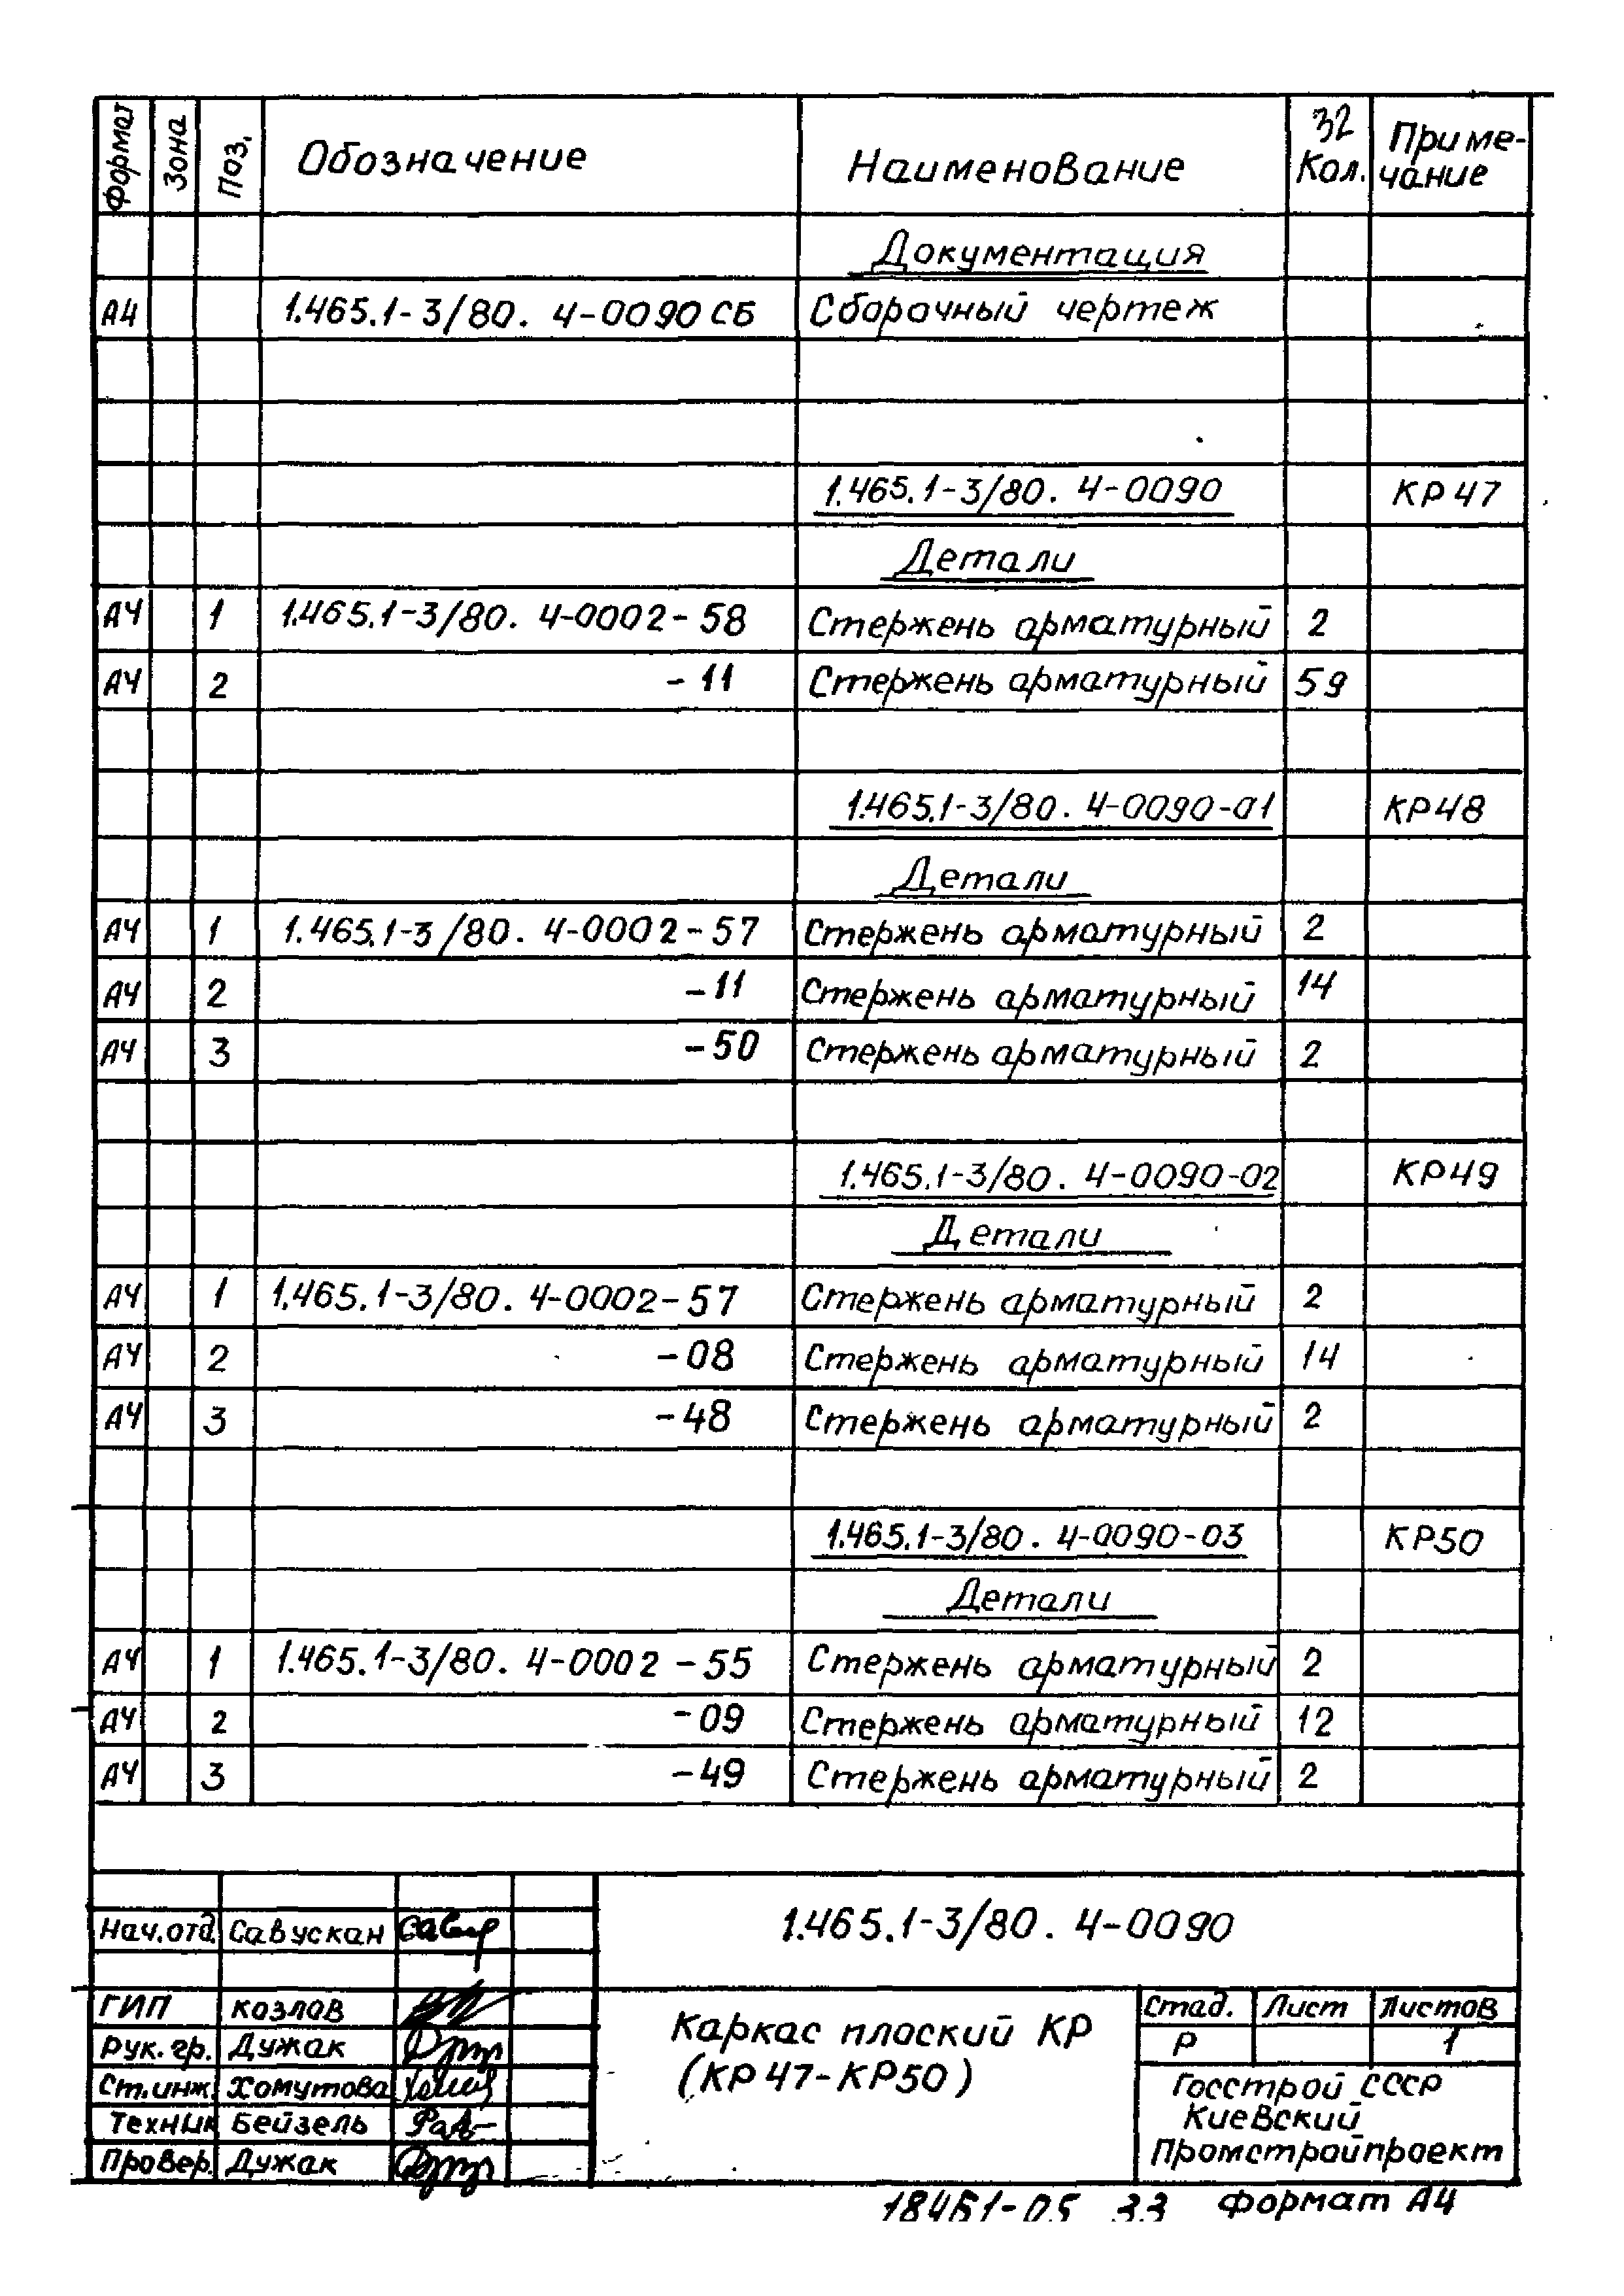 Формат Зона Поз. Обозначение Наименование Кол. Приме-
чание
32
Документация
А4 1.465.1-3/80. 4-0090 СБ Сборочный чертеж
1.465.1-3/80. 4-0090 КР47
Детали
А4 1 1.465.1-3/80. 4-0002-58 Стержень арматурный 2
А4 2 -11 Стержень арматурный 59
1.465.1-3/80. 4-0090-01 КР48
Детали
А4 1 1.465.1-3/80. 4-0002-57 Стержень арматурный 2
А4 2 -11 Стержень арматурный 14
А4 3 -50 Стержень арматурный 2
1.465.1-3/80. 4-0090-02 КР49
Детали
А4 1 1.465.1-3/80. 4-0002-57 Стержень арматурный 2
А4 2 -08 Стержень арматурный 14
А4 3 -48 Стержень арматурный 2
1.465.1-3/80. 4-0090-03 КР50
Детали
А4 1 1.465.1-3/80. 4-0002-55 Стержень арматурный 2
А4 2 -09 Стержень арматурный 12
А4 3 -49 Стержень арматурный 2
1.465.1-3/80. 4-0090
Нач.отд. Савускан
ГИП Козлов
Рук.гр. Дужак
Ст.инж. Хомутова
Техник Бейзель
Провер. Дужак
Каркас плоский КР
(КР47-КР50)
Стад. Лист Листов
Р 1
Госстрой СССР
Киевский
Промстройпроект
18461-05 33 Формат А4